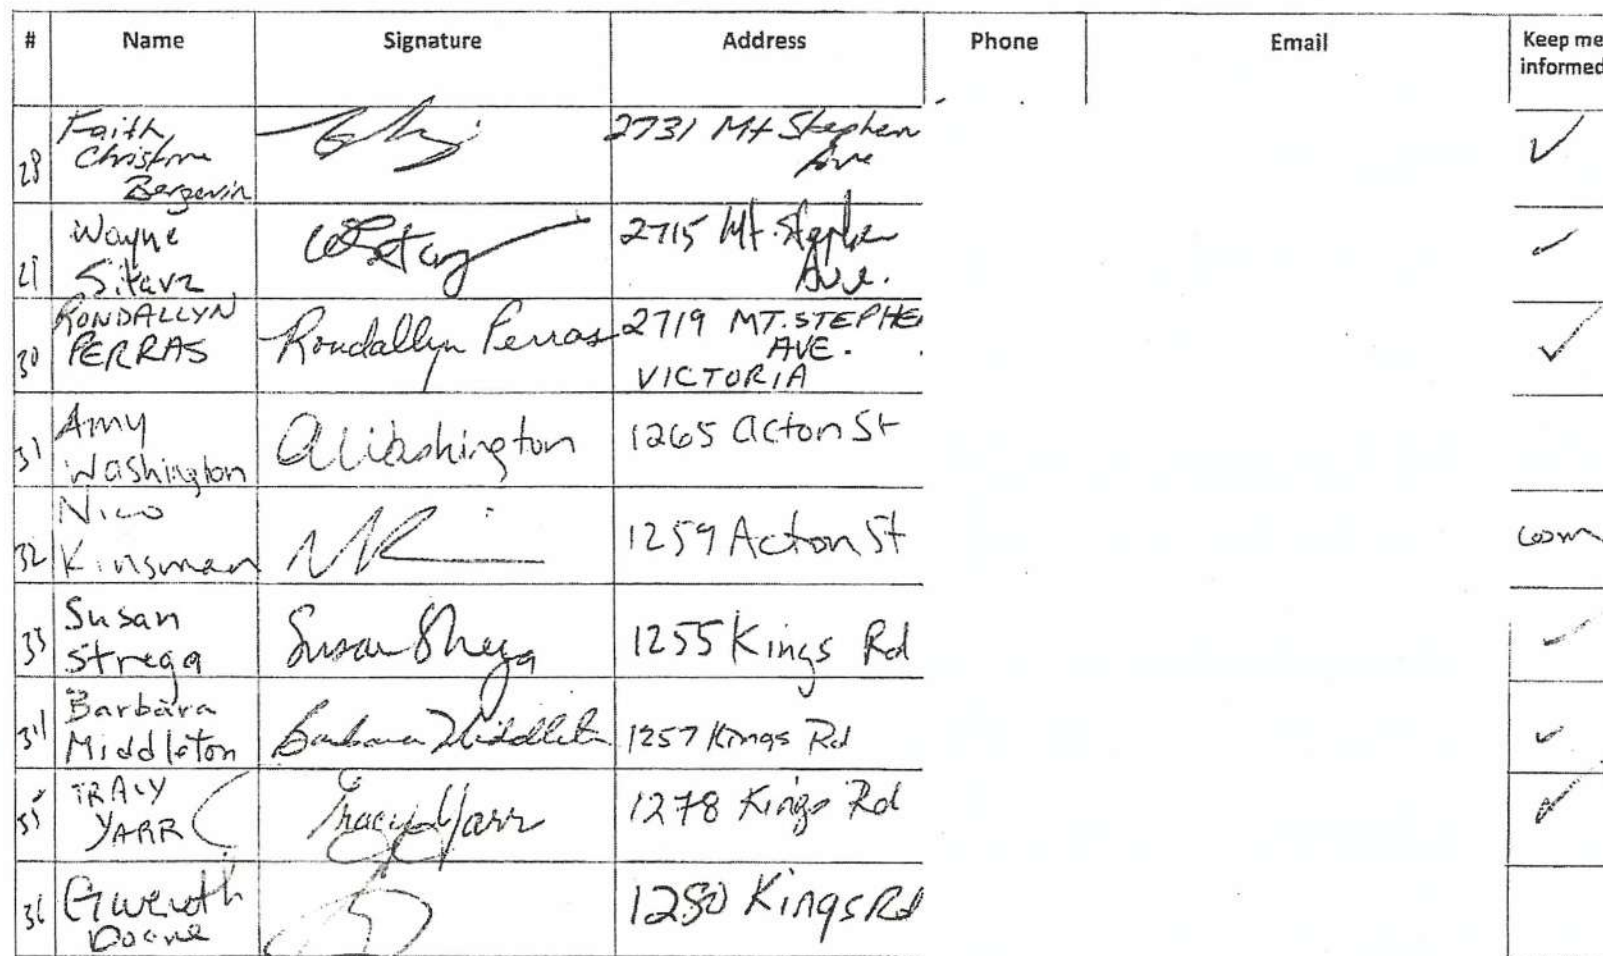 # Name Signature Address Phone Email Keep me informed
28 Faith Christine Bergevin 2731 Mt Stephen Ave ✓
29 Wayne Sitarz 2715 Mt. Stephen Ave. ✓
30 RONDALLYN PERRAS Rondallyn Perras 2719 MT. STEPHEN AVE. VICTORIA ✓
31 Amy Washington A Washington 1265 Acton St
32 Nico Kinsman 1259 Acton St
33 Susan Strega Susan Strega 1255 Kings Rd ✓
34 Barbara Middleton Barbara Middleton 1257 Kings Rd ✓
35 TRACY YARR Tracy Yarr 1278 Kings Rd ✓
36 Gwenoth Doane 1280 Kings Rd